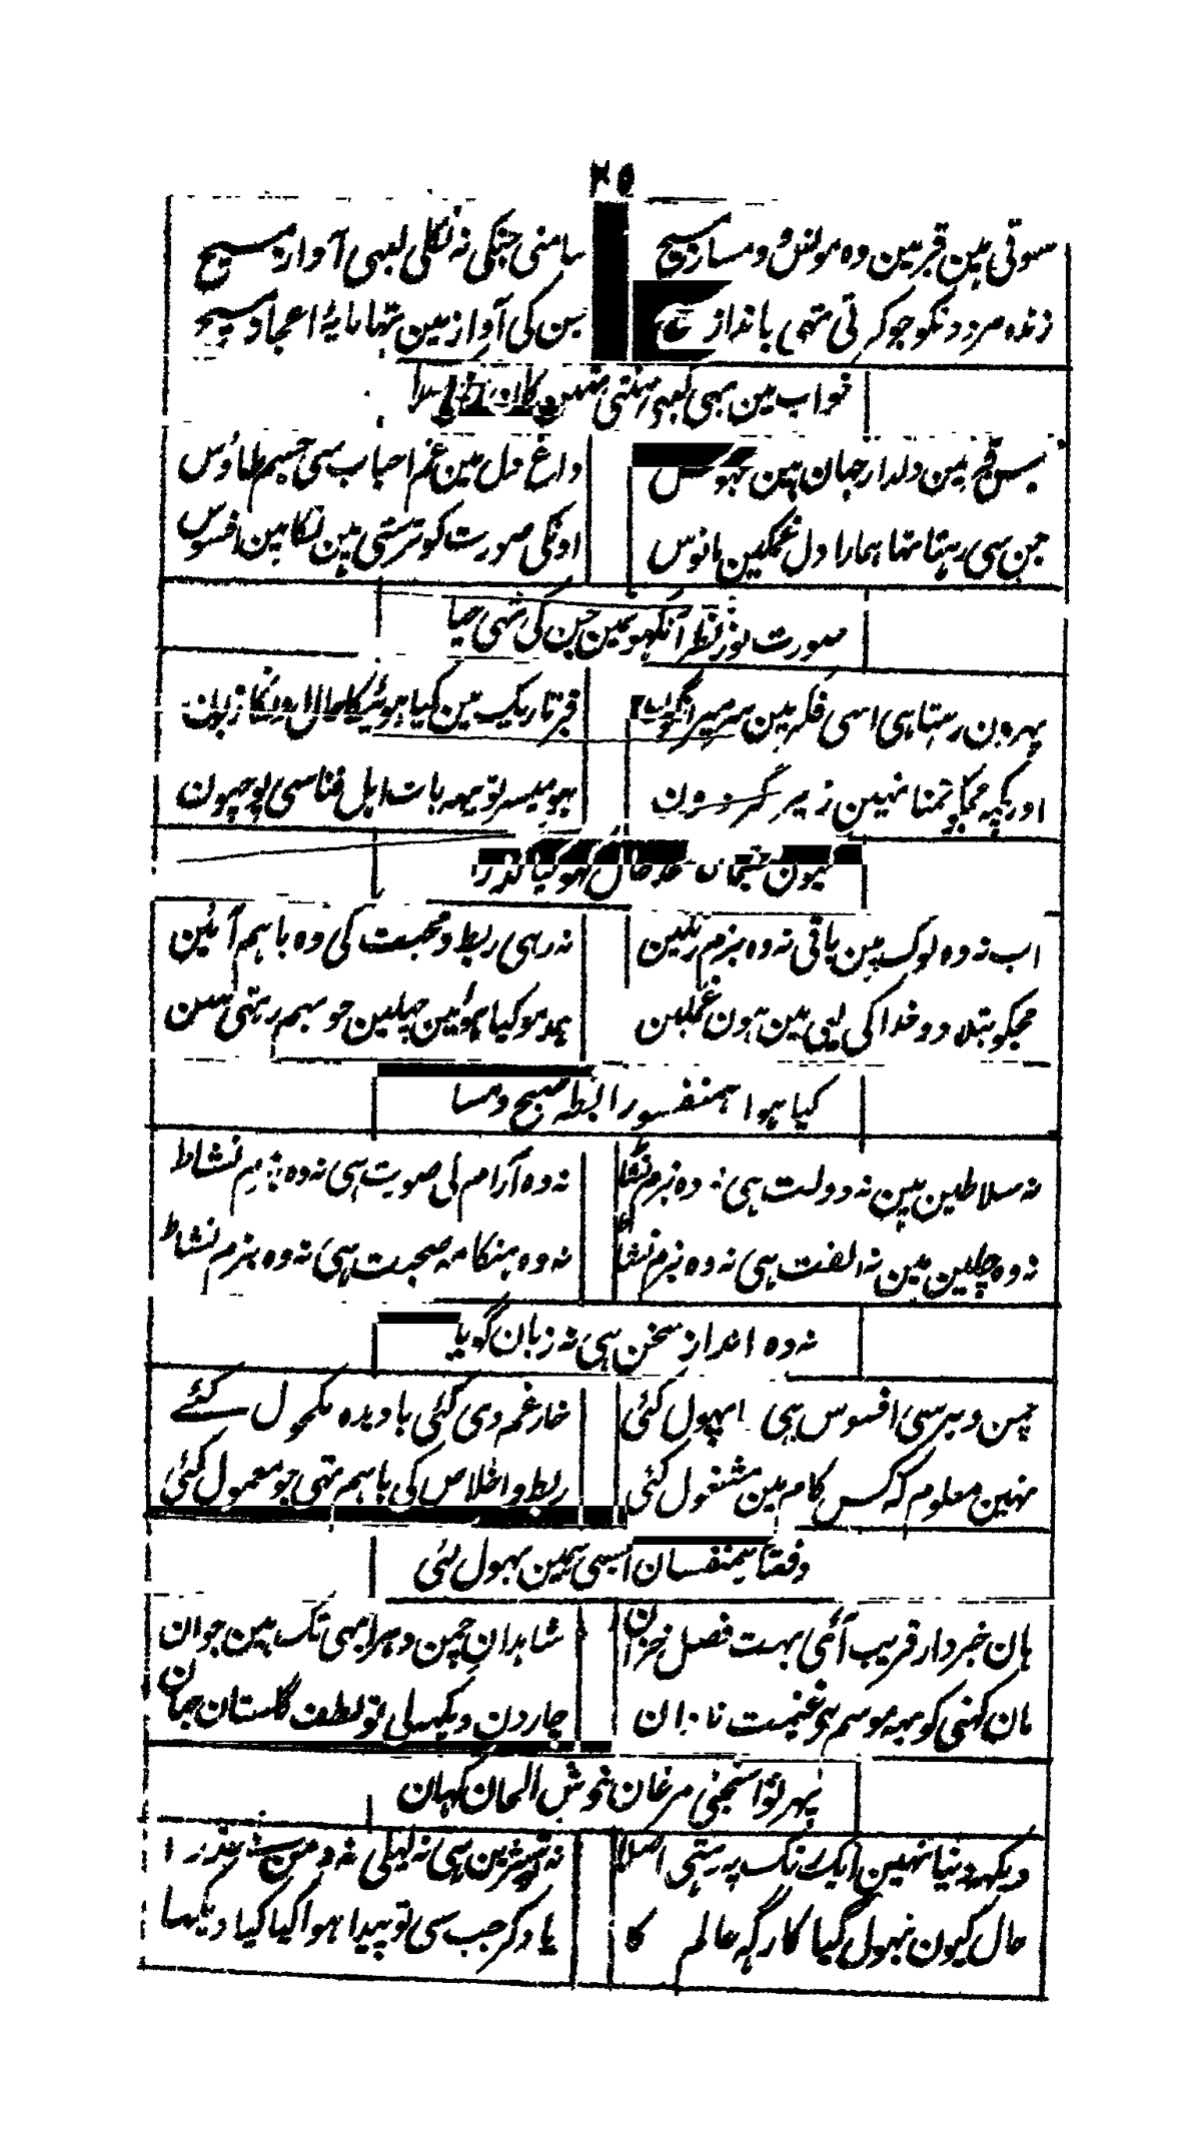 ۲۵
سوتی ہین قبر مین وہ مونس و دمساز مسیح
سامنی جنکی نہ نکلی کبھی آواز مسیح
زندہ مردونکو جو کرتی تھی بانداز مسیح
جن کی آواز مین تھا مایۂ اعجاز مسیح
خواب مین بھی کبھی سنتی نہین کان
قبر مین دلدار جہان ہین محبوس
داغ دل مین غم احباب سی جسم طاؤس
جن سی رہتا تھا ہمارا دل غمگین مانوس
اونکی صورت کو ترستی ہین نگاہین افسوس
صورت نور نظر آنکھونمین جن کی تھی جا
پہرون رہتا ہی اسی فکر مین سر میرا نگون
قبر تاریک مین کیا ہوئیگا حال اونکا زبون
اور کچھ مجکو تمنا نہین زیر گردون
ہو میسر تو یہہ بات اہل فنا سی پوچھون
کیون حال کہو کیا گذرا
اب نہ وہ لوگ ہین باقی نہ وہ بزم رنگین
نہ رہی ربط و محبت کی وہ باہم آئین
مجکو بتلا دو خدا کی لیی مین ہون غمگین
ہمدمو کیا ہوئین جہلین جو بہم رہتی تھین
کیا ہوا ہمنفسو رابطہ صبح و مسا
نہ سلاطین ہین نہ دولت ہی نہ وہ بزم نشاط
نہ وہ آرام کی صورت ہی نہ وہ بزم نشاط
نہ وہ چلین ہین نہ الفت ہی نہ وہ بزم نشاط
نہ وہ ہنگامہ صحبت ہی نہ وہ بزم نشاط
نہ وہ انداز سخن ہی نہ زبان گویا
چمن دہر سی افسوس ہی پھول گئی
خار غم دی گئی با دیدہ مکحول گئے
نہین معلوم کہ کس کام مین مشغول گئی
ربط و اخلاص کی باہم تھی جو معمول گئی
دفعتاً ہمنفسان ایسی ہمین بھول گئی
ہان خبردار قریب آئی بہت فصل خزان
شاہدان چمن دہر ابھی تک ہین جوان
مان کہنی کو یہہ موسم ہی غنیمت نادان
چار دن دیکھہ لی تو لطف گلستان جہان
پھر نوا سنجئی مرغان خوش الحان کہان
دیکھہ دنیا نہین ایک رنگ پہ رہتی اصلا
نہ شیرین ہی نہ لیلی نہ عذرا
حال کیون بھول گیا کارگہ عالم کا
یاد کر جب سی تو پیدا ہوا کیا کیا دیکھا